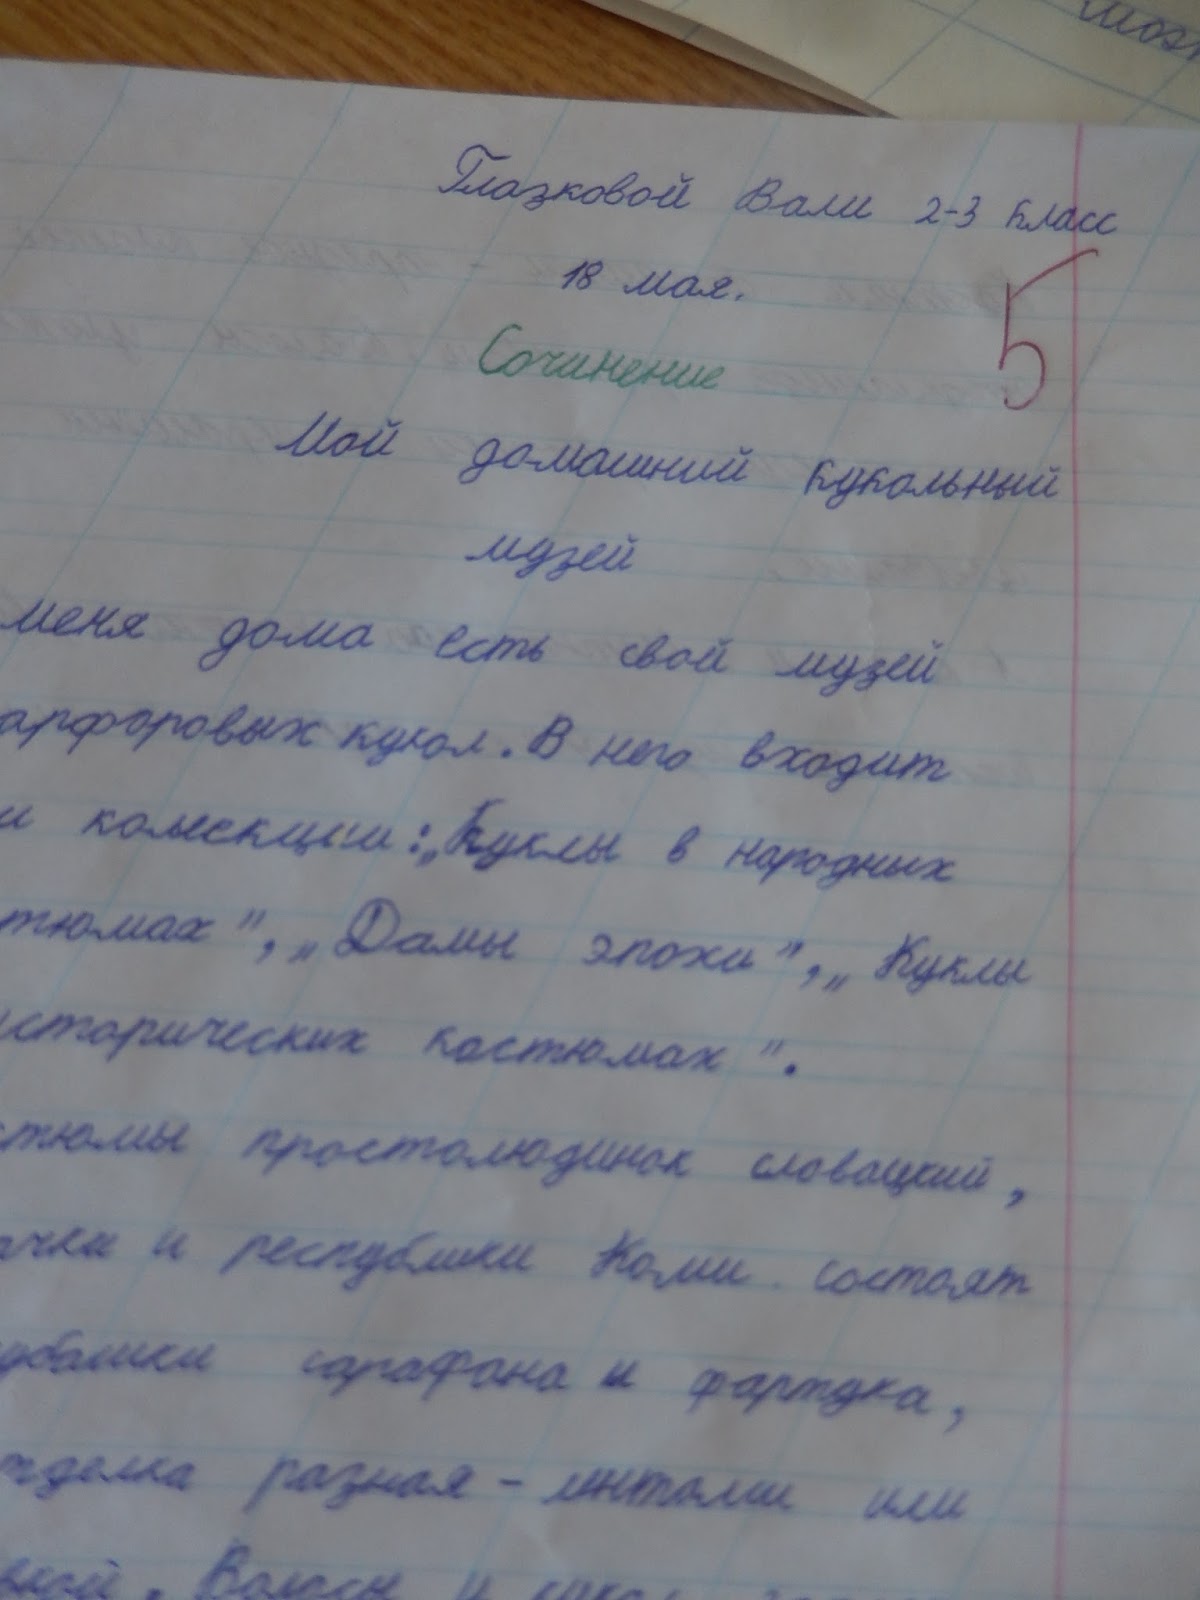 Глазковой Вали 2-3 класс
18 мая.
5
Сочинение
Мой домашний кукольный
музей
меня дома есть свой музей
арфоровых кукол. В него входит
и колекции: „Куклы в народных
тюмах", „Дамы эпохи", „Куклы
исторических костюмах".
стюмы простолюдинок словацкий,
ачки и республики Коми состоят
убашки сарафана и фартука,
тделка разная - лентами или
вкой. Волосы и